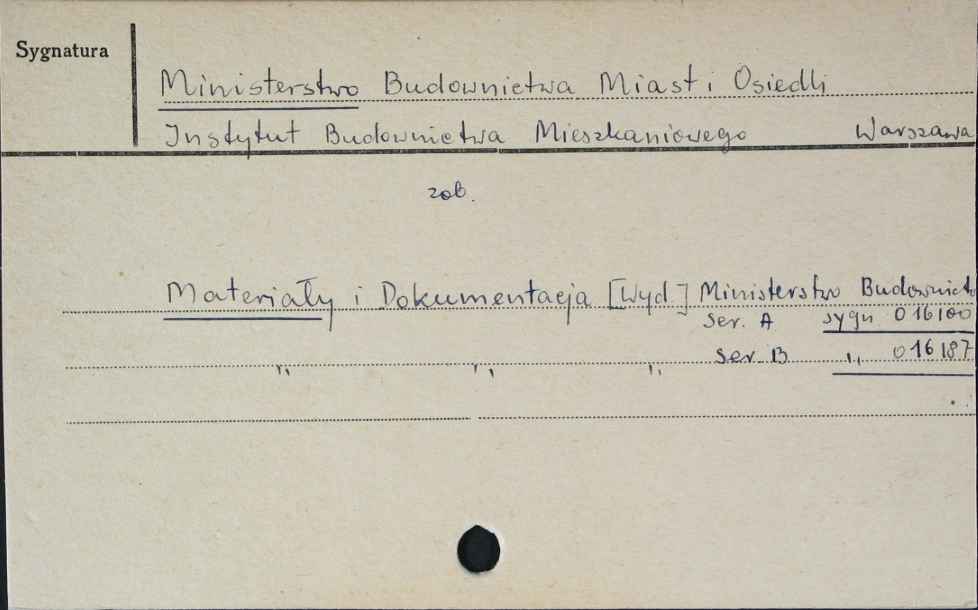 Sygnatura
Ministerstwo Budownictwa Miast i Osiedli
Instytut Budownictwa Mieszkaniowego Warszawa
zob.
Materiały i Dokumentacja [Wyd.] Ministerstwo Budownict
Ser. A sygn 016100
" " " Ser. B " 016187